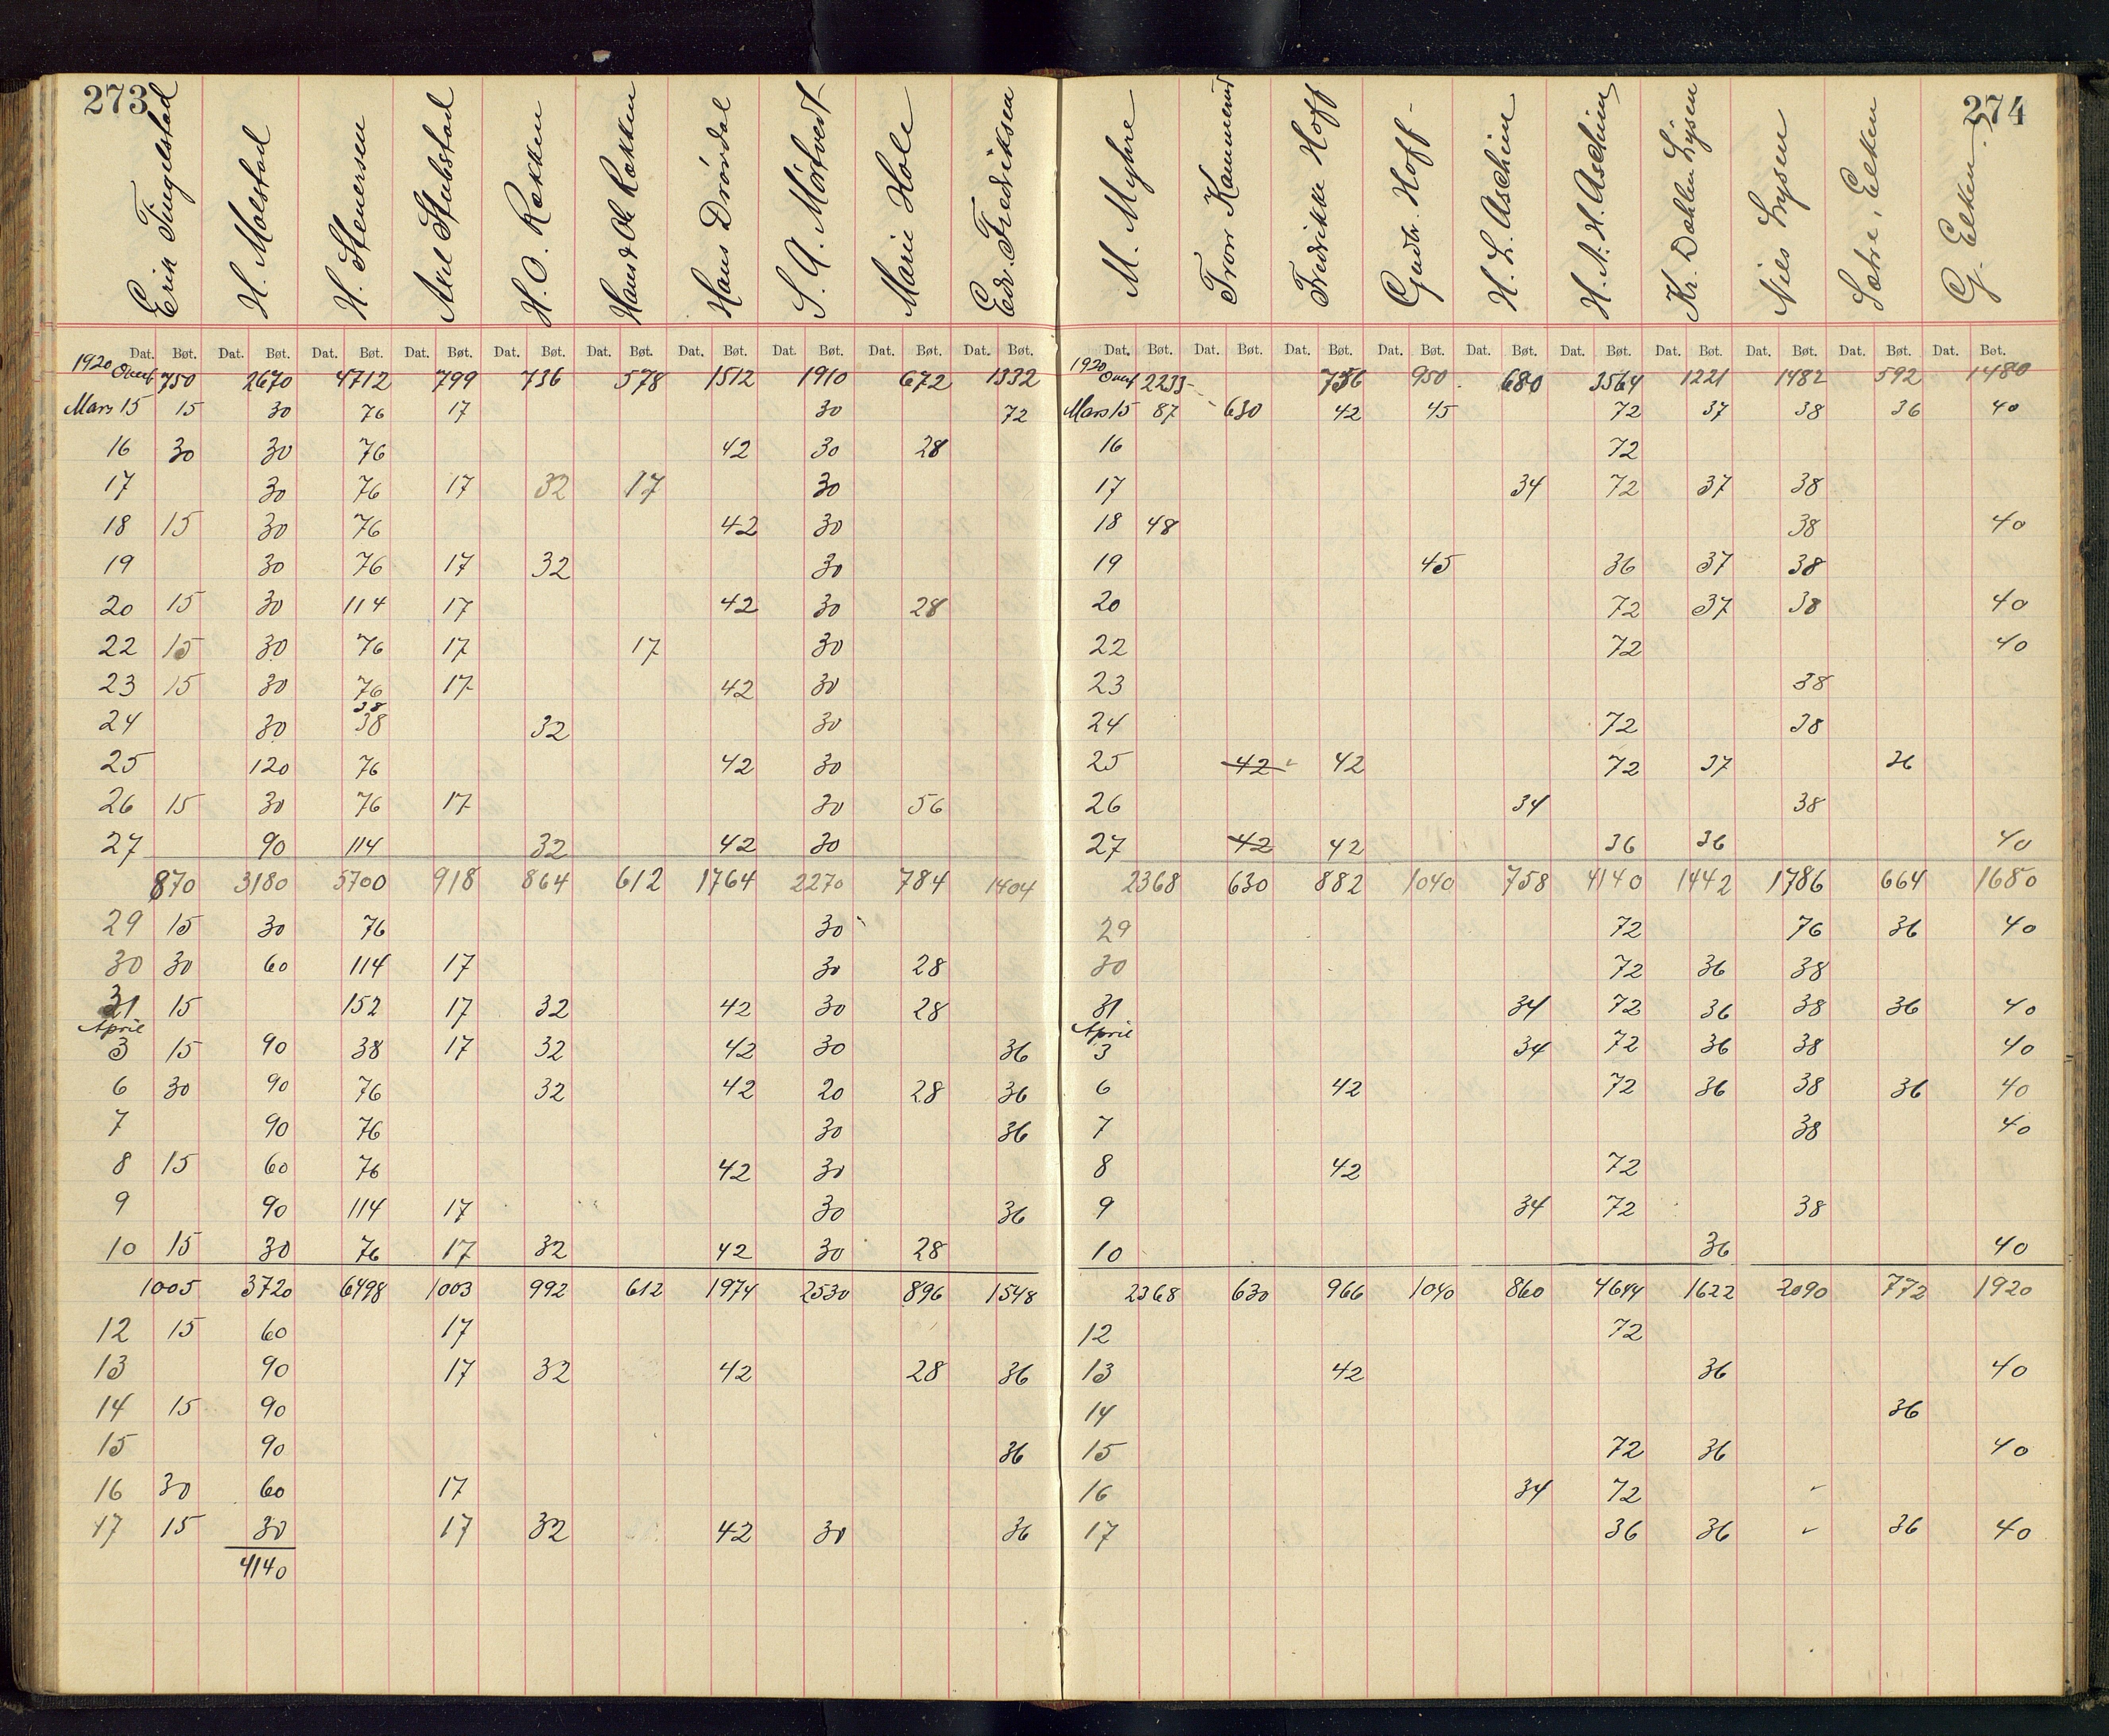 273
Erik Tingelstad H. Molstad H. Stenersen Axel Stubstad H. O. Røkken Hans & Ole Røkken Hans Drøvdal S. A. Mørtvedt Marie Hole Edv. Fredriksen
Dat. Bøt. Dat. Bøt. Dat. Bøt. Dat. Bøt. Dat. Bøt. Dat. Bøt. Dat. Bøt. Dat. Bøt. Dat. Bøt. Dat. Bøt.
1920 Overf 750 2670 4712 799 736 578 1512 1910 672 1332
Mars 15 15 30 76 17 30 72
16 30 30 76 42 30 28
17 30 76 17 32 17 30
18 15 30 76 42 30
19 30 76 17 32 30
20 15 30 114 17 42 30 28
22 15 30 76 17 17 30
23 15 30 76 17 42 30
38
24 30 38 32 30
25 120 76 42 30
26 15 30 76 17 30 56
27 90 114 32 42 30
870 3180 5700 918 864 612 1764 2270 784 1404
29 15 30 76 30
30 30 60 114 17 30 28
31 15 152 17 32 42 30 28
April
3 15 90 38 17 32 42 30 36
6 30 90 76 32 42 20 28 36
7 90 76 30 36
8 15 60 76 42 30
9 90 114 17 30 36
10 15 30 76 17 32 42 30 28
1005 3720 6498 1003 992 612 1974 2530 896 1548
12 15 60 17
13 90 17 32 42 28 36
14 15 90
15 90 36
16 30 60 17
17 15 30 17 32 42 30 36
4140
274
M. Myhre Tron Kammerud Fredrikke Hoff Gudbr. Hoff H. L. Aschim H. N. H. Aschim Kr. Dæhlen Lysen Niels Lysen Sætre, Elken G. Elken
Dat. Bøt. Dat. Bøt. Dat. Bøt. Dat. Bøt. Dat. Bøt. Dat. Bøt. Dat. Bøt. Dat. Bøt. Dat. Bøt. Dat. Bøt.
1920 Overf 2233 756 950 680 3564 1221 1482 592 1480
Mars 15 87 630 42 45 72 37 38 36 40
16 72
17 34 72 37 38
18 48 38 40
19 45 36 37 38
20 72 37 38 40
22 72 40
23 38
24 72 38
25 42 42 72 37 36
26 34 38
27 42 42 36 36 40
2368 630 882 1040 758 4140 1442 1786 664 1680
29 72 76 36 40
30 72 36 38
31 34 72 36 38 36 40
April
3 34 72 36 38 40
6 42 72 36 38 36 40
7 38 40
8 42 72
9 34 72 38
10 36 40
2368 630 966 1040 860 4644 1622 2090 772 1920
12 72
13 42 36 40
14 36
15 72 36 40
16 34 72
17 36 36 36 40